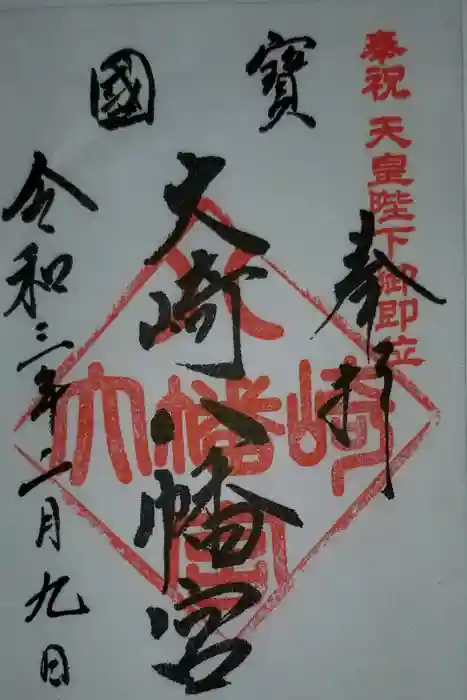 國寳
奉祝 天皇陛下御即位
奉拝
大崎八幡宮
令和三年二月九日
大崎八幡宮